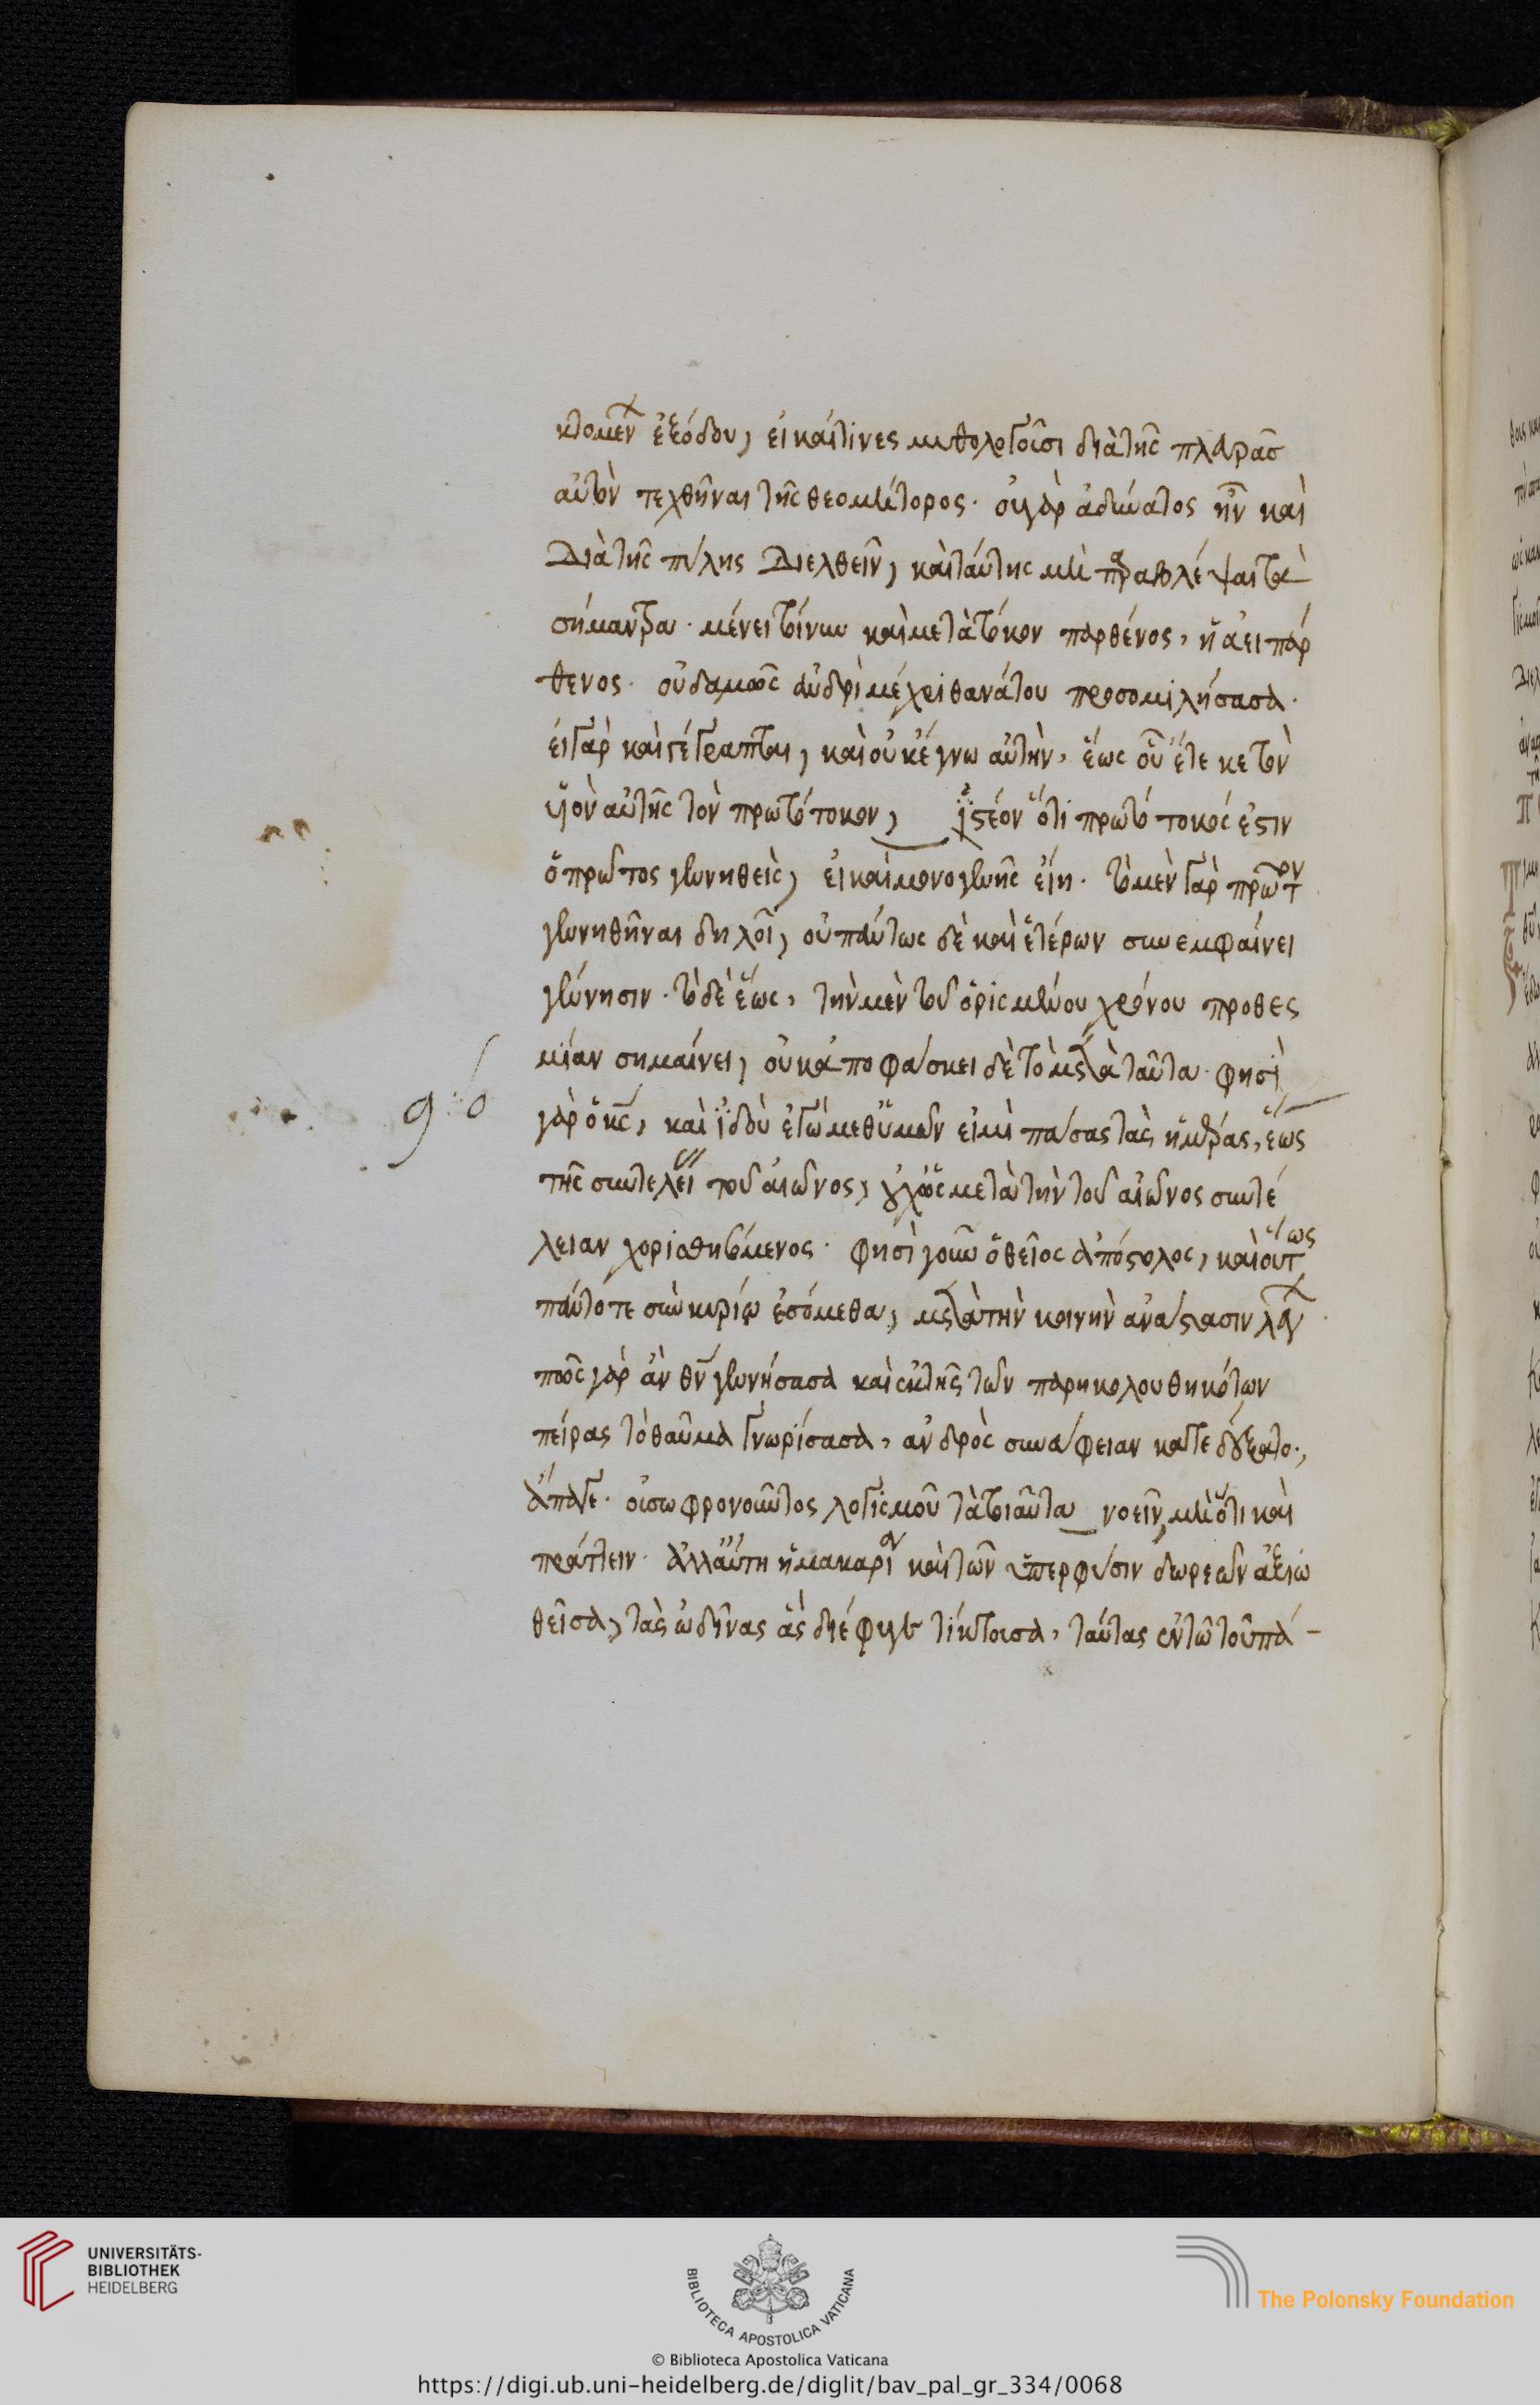 κτομένην ἐξόδου, εἰ καί τινες μυθολογοῦσι διὰ τῆς πλευρᾶς
αὐτὸν τεχθῆναι τῆς θεομήτορος. οὐ γὰρ ἀδύνατος ἦν καὶ
διὰ τῆς πύλης διελθεῖν, καὶ ταύτης μὴ παραβλέψαι τὰ
σήμαντρα. μένει τοίνυν καὶ μετὰ τόκον παρθένος, ἡ ἀεὶ πάρ
θενος. οὐδαμῶς ἀνδρὶ μέχρι θανάτου προσομιλήσασα.
εἰ γὰρ καὶ γέγραπται, καὶ οὐκ ἔγνω αὐτὴν, ἕως οὗ ἔτεκε τὸν
υἱὸν αὐτῆς τὸν πρωτότοκον, ἰστέον ὅτι πρωτότοκός ἐστιν
ὁ πρῶτος γεννηθεὶς, εἰ καὶ μονογενὴς εἴη. τὸ μὲν γὰρ πρῶτον
γεννηθῆναι δηλοῖ, οὐ πάντως δὲ καὶ ἑτέρων συνεμφαίνει
γέννησιν. τὸ δὲ ἕως, τὴν μὲν τοῦ ὁρισμένου χρόνου προθεσ
μίαν σημαίνει, οὐκ ἀποφάσκει δὲ τὸ μετὰ ταῦτα. φησὶ
γὰρ ὁ κς, καὶ ἰδοὺ ἐγὼ μεθ' ὑμῶν εἰμι πάσας τὰς ἡμέρας, ἕως
τῆς συντελείας τοῦ αἰῶνος, οὐχ ὡς μετὰ τὴν τοῦ αἰῶνος συντέ
λειαν χωρισθησόμενος. φησὶ γοῦν ὁ θεῖος ἀπόστολος, καὶ οὕτως
πάντοτε σὺν κυρίῳ ἐσόμεθα, μετὰ τὴν κοινὴν ἀνάστασιν λέγων
πῶς γὰρ ἂν θν γεννήσασα καὶ ἐκ τῆς τῶν παρηκολουθηκότων
πείρας τὸ θαῦμα γνωρίσασα, ἀνδρὸς συνάφειαν κατεδέξατο;
ἄπαγε. οὐ σωφρονοῦντος λογισμοῦ τὰ τοιαῦτα νοεῖν, μὴ ὅτι καὶ
πράττειν. ἀλλ' αὕτη ἡ μακαρία καὶ τῶν ὑπερφύσιν δωρεῶν ἀξιω
θεῖσα, τὰς ὠδῖνας ἃς διέφυγε τίκτουσα, ταύτας ἐν τῷ τοῦ πά-
UNIVERSITÄTS-
BIBLIOTHEK
HEIDELBERG
BIBLIOTECA APOSTOLICA VATICANA
The Polonsky Foundation
© Biblioteca Apostolica Vaticana
https://digi.ub.uni-heidelberg.de/diglit/bav_pal_gr_334/0068